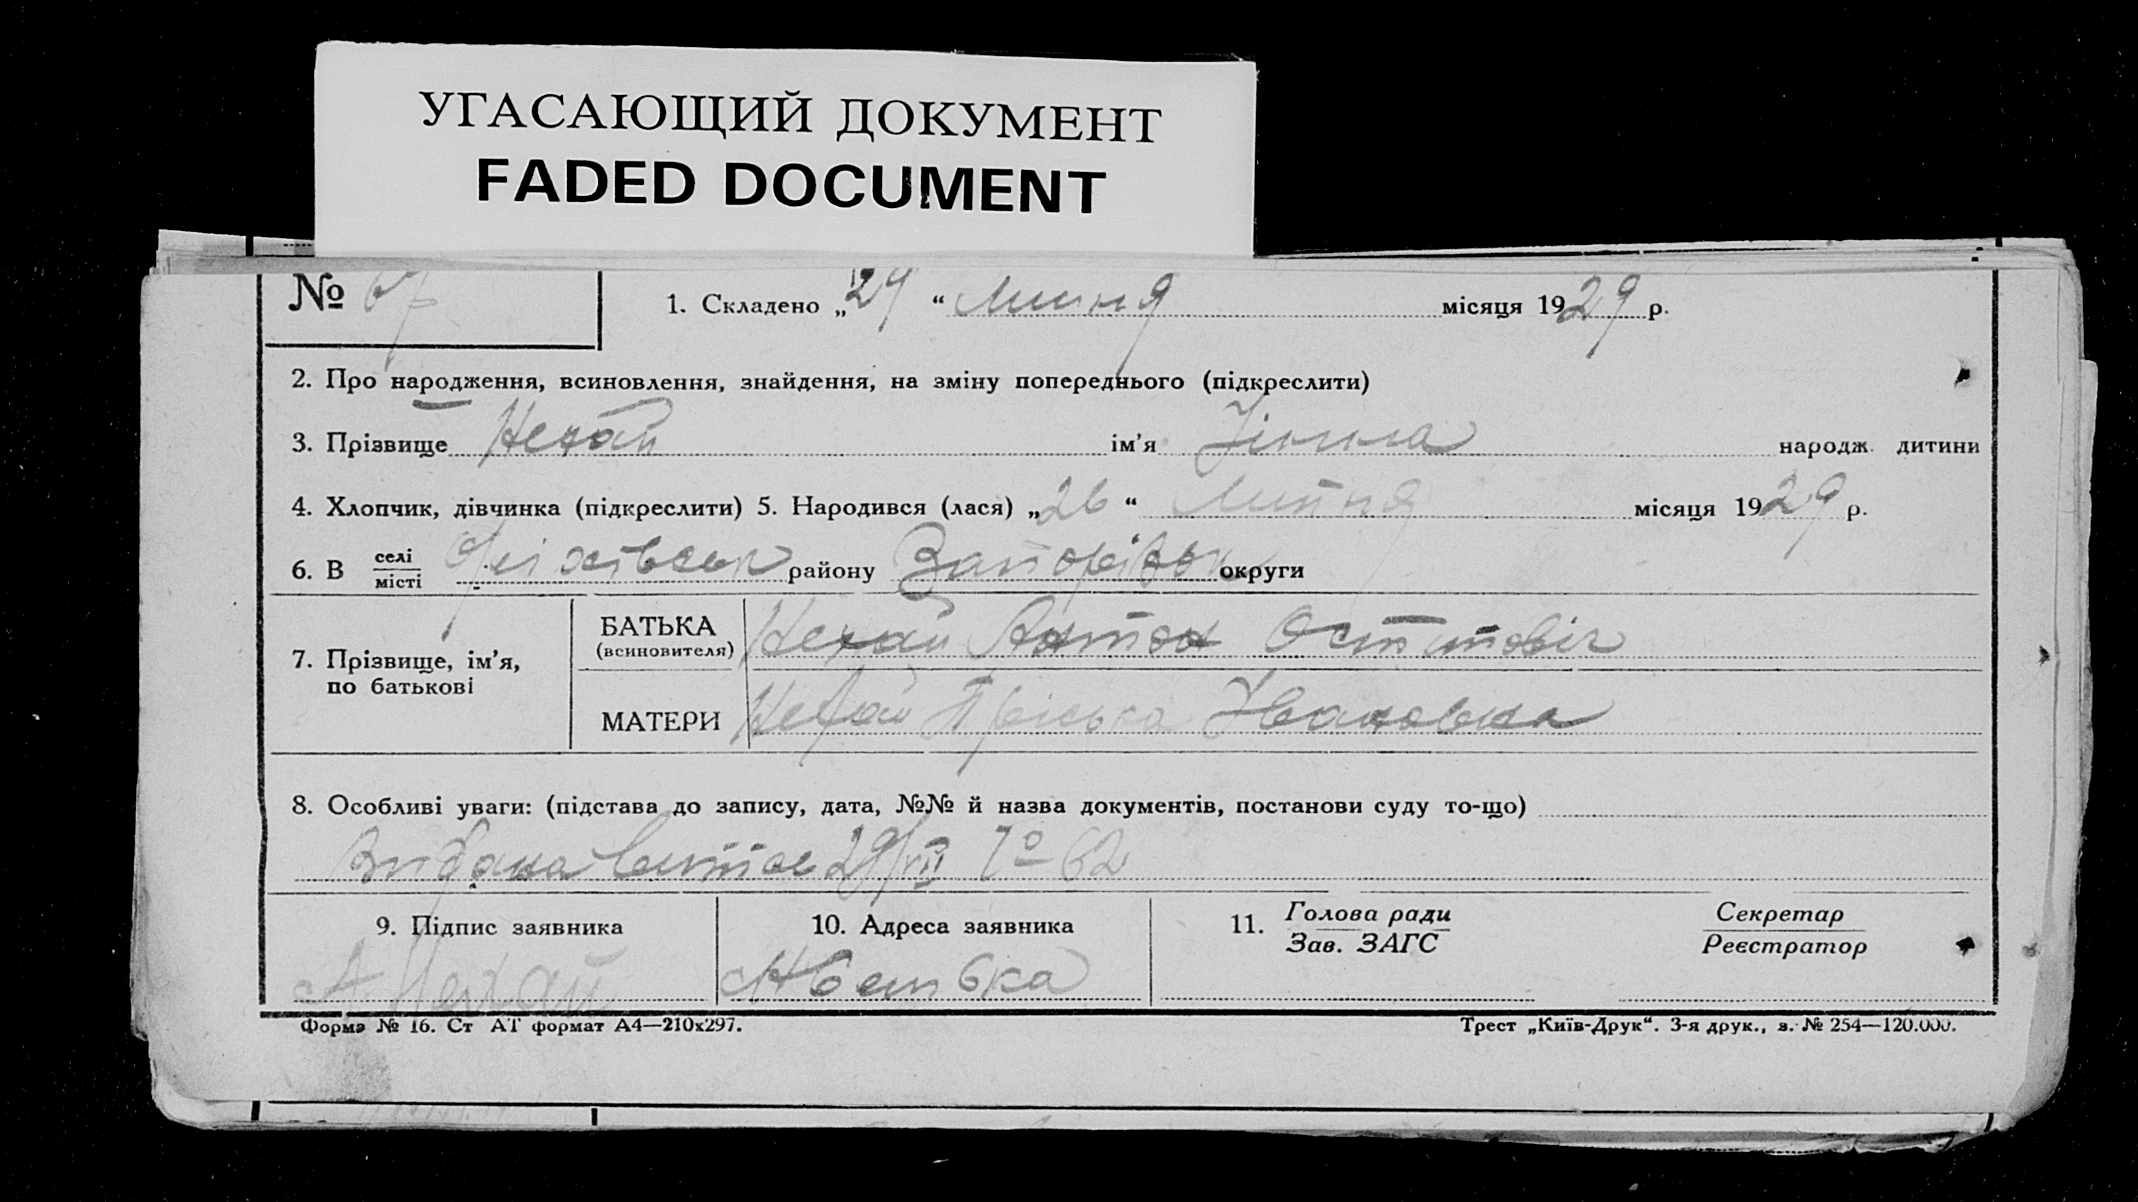 УГАСАЮЩИЙ ДОКУМЕНТ
FADED DOCUMENT
№
1. Складено „29“ Липня місяця 1929 р.
2. Про народження, всиновлення, знайдення, на зміну попереднього (підкреслити)
3. Прізвище Нехай ім’я народж. дитини
4. Хлопчик, дівчинка (підкреслити) 5. Народився (лася) „26“ Липня місяця 1929 р.
6. В селі місті району Запорізьк округи
7. Прізвище, ім’я, по батькові
БАТЬКА (всиновителя) Нехай Антон
МАТЕРИ Нехай Пріська Івановна
8. Особливі уваги: (підстава до запису, дата, №№ й назва документів, постанови суду то-що)
Видана 29/VII № 62
9. Підпис заявника
А Нехай
10. Адреса заявника
11. Голова ради Зав. ЗАГС
Секретар Реєстратор
Форма № 16. Ст АТ формат А4—210х297.
Трест „Київ-Друк“. 3-я друк., з. № 254—120.000.